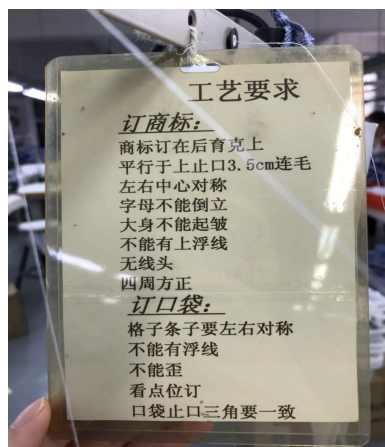 工艺要求
订商标：
商标订在后育克上
平行于上止口3.5cm连毛
左右中心对称
字母不能倒立
大身不能起皱
不能有上浮线
无线头
四周方正
订口袋：
格子条子要左右对称
不能有浮线
不能歪
看点位订
口袋止口三角要一致